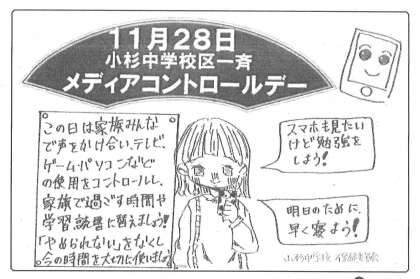 11月28日
小杉中学校区一斉
メディアコントロールデー
この日は家族みんな
で声をかけ合い、テレビ、
ゲーム・パソコンなど
の使用をコントロールし、
家族で過ごす時間や
学習、読書に替えましょう!
「やめられない」をなくし
今の時間を大切に使いましょう
スマホも見たい
けど勉強を
しよう!
明日のために、
早く寝よう!
小杉中学校